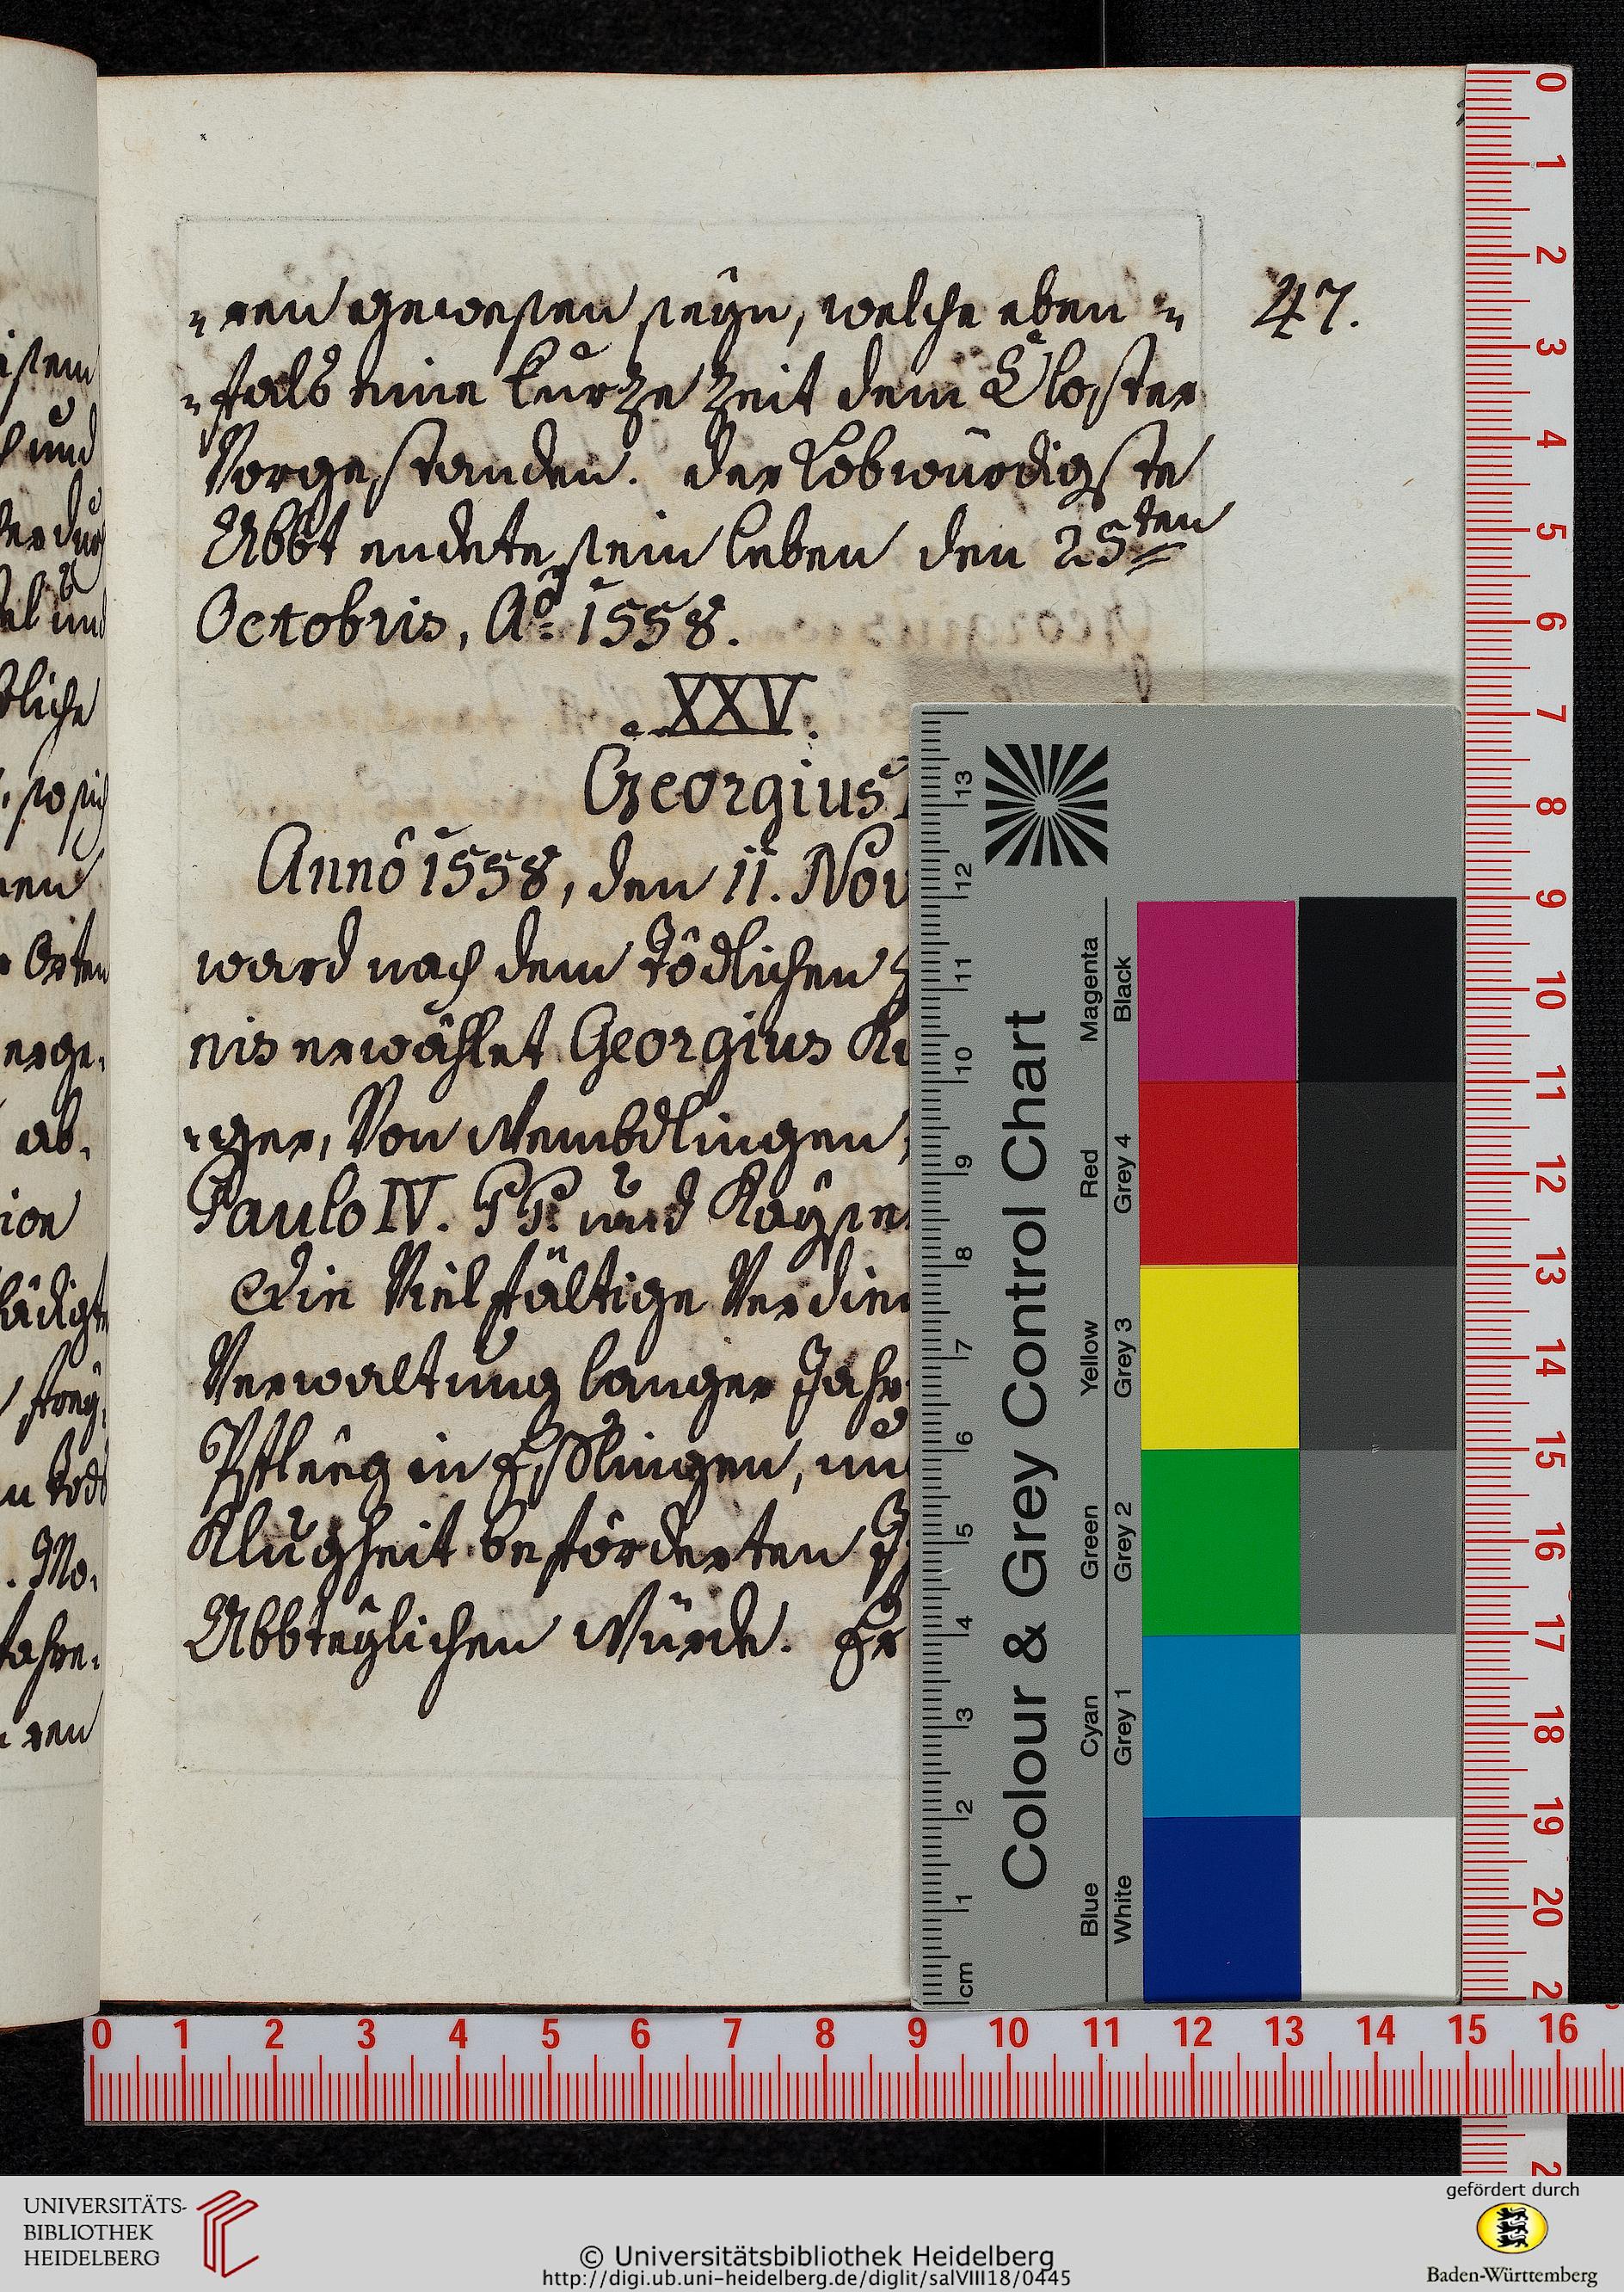 47.
ren gewesen seyn, welche eben
fals eine kurze Zeit dem Closter
Vorgestanden. der Lobwürdigste
Abbt endete sein leben den 25ten
Octobris, Ao. 1558.
XXV.
Georgius
Anno 1558, den 11. Nov
ward nach dem tödlichen
nis erwählet Georgius
ger, Von Wembdlingen
Paulo IV. PP. und Kayser
Die Vielfältige Verdien
Verwaltung langer Jahr
Pfleeg in Eßlingen, und
Klugheit beförderten
Abbteylichen Würde. Er
istem
und
liche
Orten
ab.
Mo.
ren
Colour & Grey Control Chart
Magenta
Black
Red
Grey 4
Yellow
Grey 3
Green
Grey 2
Cyan
Grey 1
Blue
White
13
12
11
10
9
8
7
6
5
4
3
2
1
cm
0
1
2
3
4
5
6
7
8
9
10
11
12
13
14
15
16
17
18
19
20
2
0 1 2 3 4 5 6 7 8 9 10 11 12 13 14 15 16
2
UNIVERSITÄTS-
BIBLIOTHEK
HEIDELBERG
© Universitätsbibliothek Heidelberg
http://digi.ub.uni-heidelberg.de/diglit/salVIII18/0445
gefördert durch
Baden-Württemberg